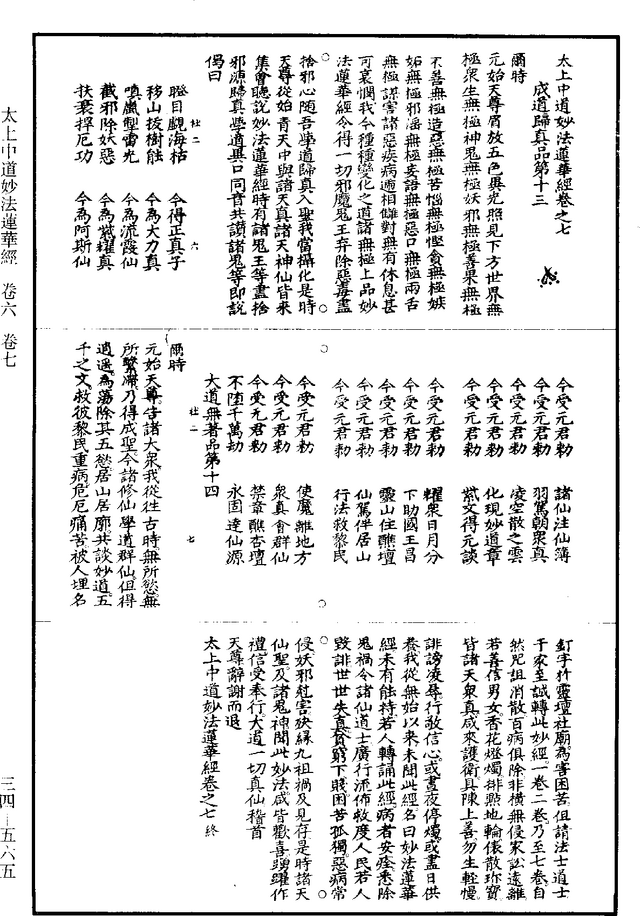 太上中道妙法蓮華經卷之七
成道歸真品第十三
爾時
元始天尊眉放五色異光照見下方世界無
極眾生無極神鬼無極妖邪無極善果無極
不善無極造惡無極苦惱無極慳貪無極嫉
妬無極邪淫無極妄語無極惡口無極兩舌
無極謀害諸惡疾病遞相讎對無有休息甚
可哀憫我今種種變化之道諸無極上品妙
法蓮華經令得一切邪魔鬼王弃除惡毒盡
捨邪心隨吾學道歸真入聖我當攝化是時
天尊從始青天中與諸天真諸天神仙皆來
集會聽說妙法蓮華經時有諸鬼王等盡捨
邪源歸真學道異口同音共讚諸鬼等即說
偈曰
瞪目觀海枯 今得正真子
移山拔樹能 今為大力真
嗔風掣雷光 今為流霞仙
截邪除妖惡 今為紫耀真
扶衰捍厄功 今為阿斯仙
杜二 六
今受元君勅 諸仙注仙簿
今受元君勅 羽駕朝眾真
今受元君勅 凌空散之雲
今受元君勅 化現妙道章
今受元君勅 紫文得元談
今受元君勅 耀眾日月分
今受元君勅 下助國王昌
今受元君勅 靈山住醮壇
今受元君勅 仙駕伴居山
今受元君勅 行法救黎民
今受元君勅 使魔離地方
今受元君勅 眾真會群仙
今受元君勅 禁章醮杏壇
不墮千萬劫 永固達仙源
大道無著品第十四
杜二 七
爾時
元始天尊告諸大眾我從往古時無所慾無
所繫滯乃得成聖今諸修仙學道群仙但得
逍遥為蕩除其五慾居山居廓共談妙道五
千之文救彼黎民重病危厄痛苦被人埋名
釘字於靈壇社廟為害困苦但請法士道士
于家至誠轉此妙經一卷二卷乃至七卷自
然咒詛消散百病俱除非橫無侵家訟遠離
若善信男女香花燈燭排照地輪俵散珎寶
皆諸天眾真咸來護衛具陳上善勿生輕慢
誹謗凌辱行敬信心或晝夜停燭或晝日供
養我從無始以來未聞此經名曰妙法蓮華
經未有能持若人轉誦此經病者安痊悉除
鬼禍令諸仙道士廣行流佈救度人民若人
毀誹世世失真貧窮下賤困苦孤獨惡病常
侵妖邪尅害殃緣九祖禍及見存是時諸天
仙聖及諸鬼神聞此妙法咸皆歡喜踴躍作
禮信受奉行大道一切真仙稽首
天尊辭謝而退
太上中道妙法蓮華經卷之七終
太上中道妙法蓮華經 卷六 卷七
三四—五六五